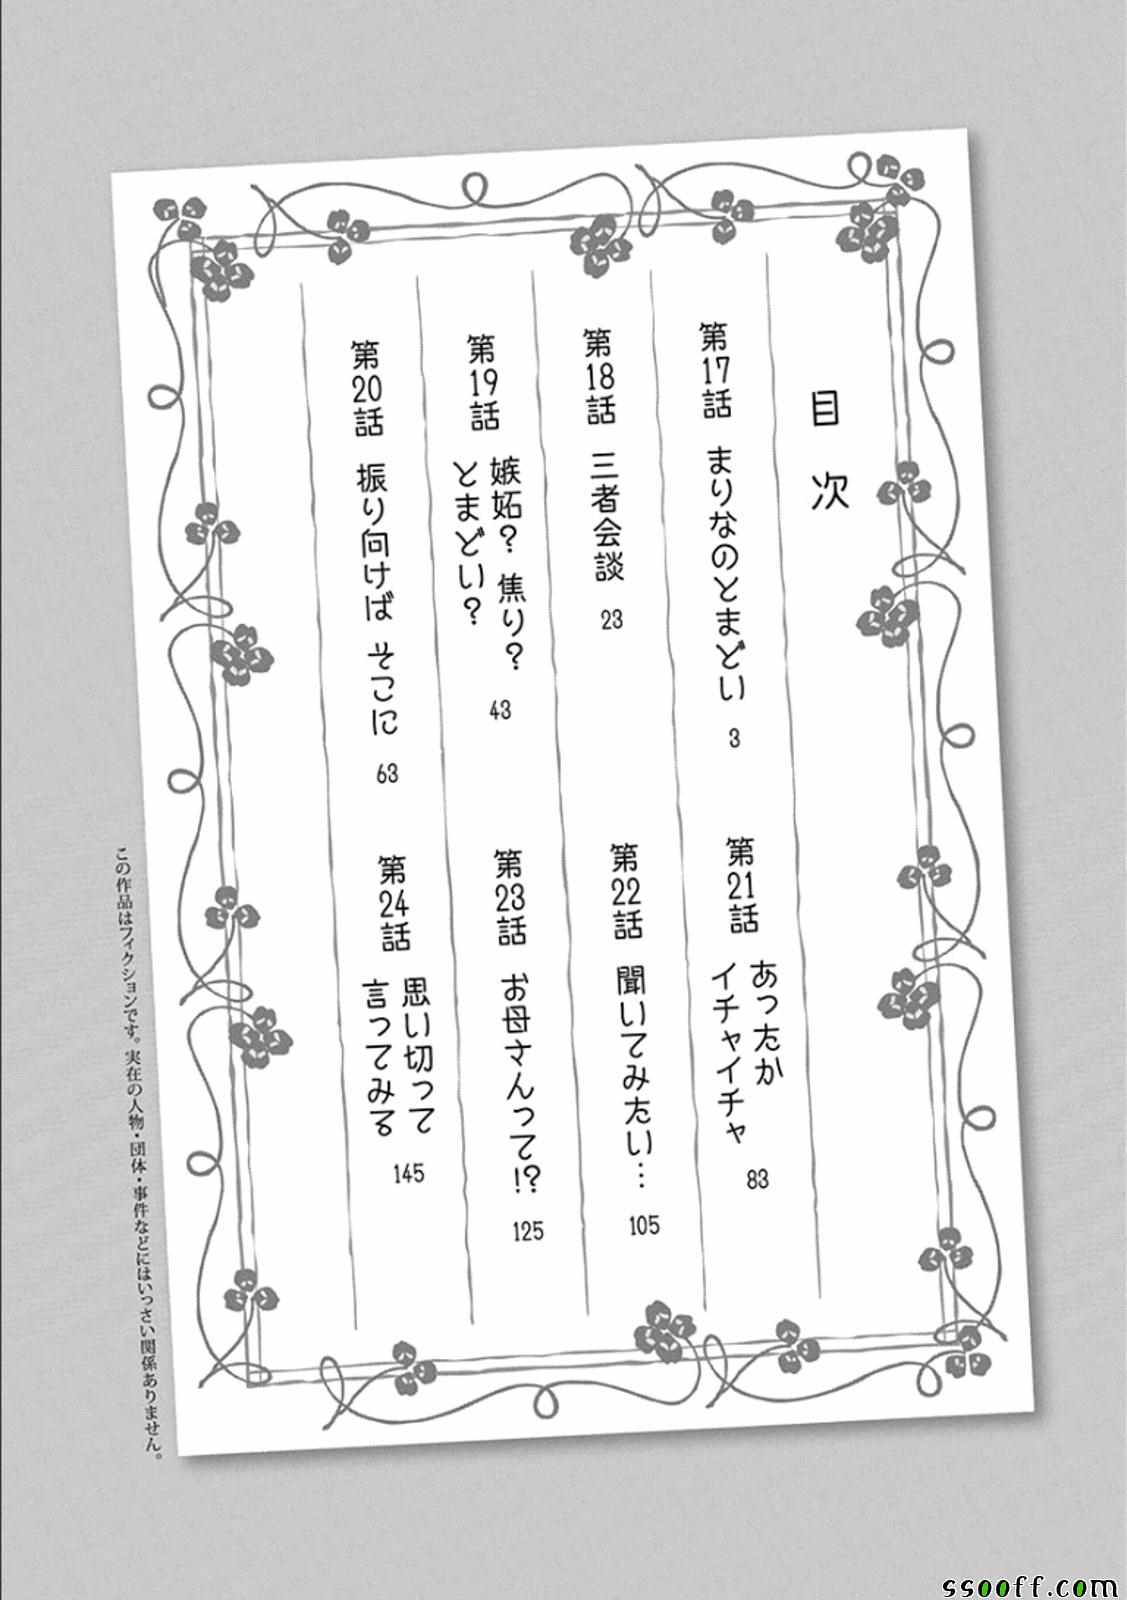 目次
第17話 まりなのとまどい 3
第18話 三者会談 23
第19話 嫉妬? 焦り?
とまどい? 43
第20話 振り向けば そこに 63
第21話 あったか
イチャイチャ 83
第22話 聞いてみたい… 105
第23話 お母さんって!? 125
第24話 思い切って
言ってみる 145
この作品はフィクションです。実在の人物・団体・事件などにはいっさい関係ありません。
ssooff.com